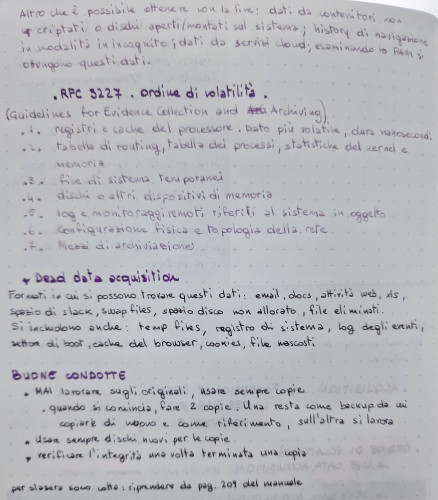 Altro che è possibile ottenere con la live: dati da contenitori non
criptati o dischi aperti/montati sul sistema; history di navigazione
in modalità in incognito; dati da servizi cloud; esaminando la RAM si
ottengono questi dati.
. RFC 3227 . ordine di volatilità .
(Guidelines for Evidence Collection and Archiving)
.1. registri e cache del processore. Dato più volatile, dura nanosecondi
.2. tabella di routing, tabella dei processi, statistiche del kernel e
memoria
.3. file di sistema temporanei
.4. dischi o altri dispositivi di memoria
.5. log e monitoraggi remoti riferiti al sistema in oggetto
.6. configurazione fisica e topologia della rete.
.7. Mezzi di archiviazione
Dead data acquisition
Formati in cui si possono trovare questi dati: email, docs, attività web, xls,
spazio di slack, swap files, spazio disco non allocato, file eliminati.
Si includono anche: temp files, registro di sistema, log degli eventi,
settore di boot, cache del browser, cookies, file nascosti
BUONE CONDOTTE
• MAI lavorare sugli originali, usare sempre copie
. quando si comincia, fare 2 copie. Una resta come backup da cui
copiare di nuovo e come riferimento, sull'altra si lavora
• Usare sempre dischi nuovi per le copie
• verificare l'integrità una volta terminata una copia
per stasera sono cotta: riprendere da pag. 209 del manuale